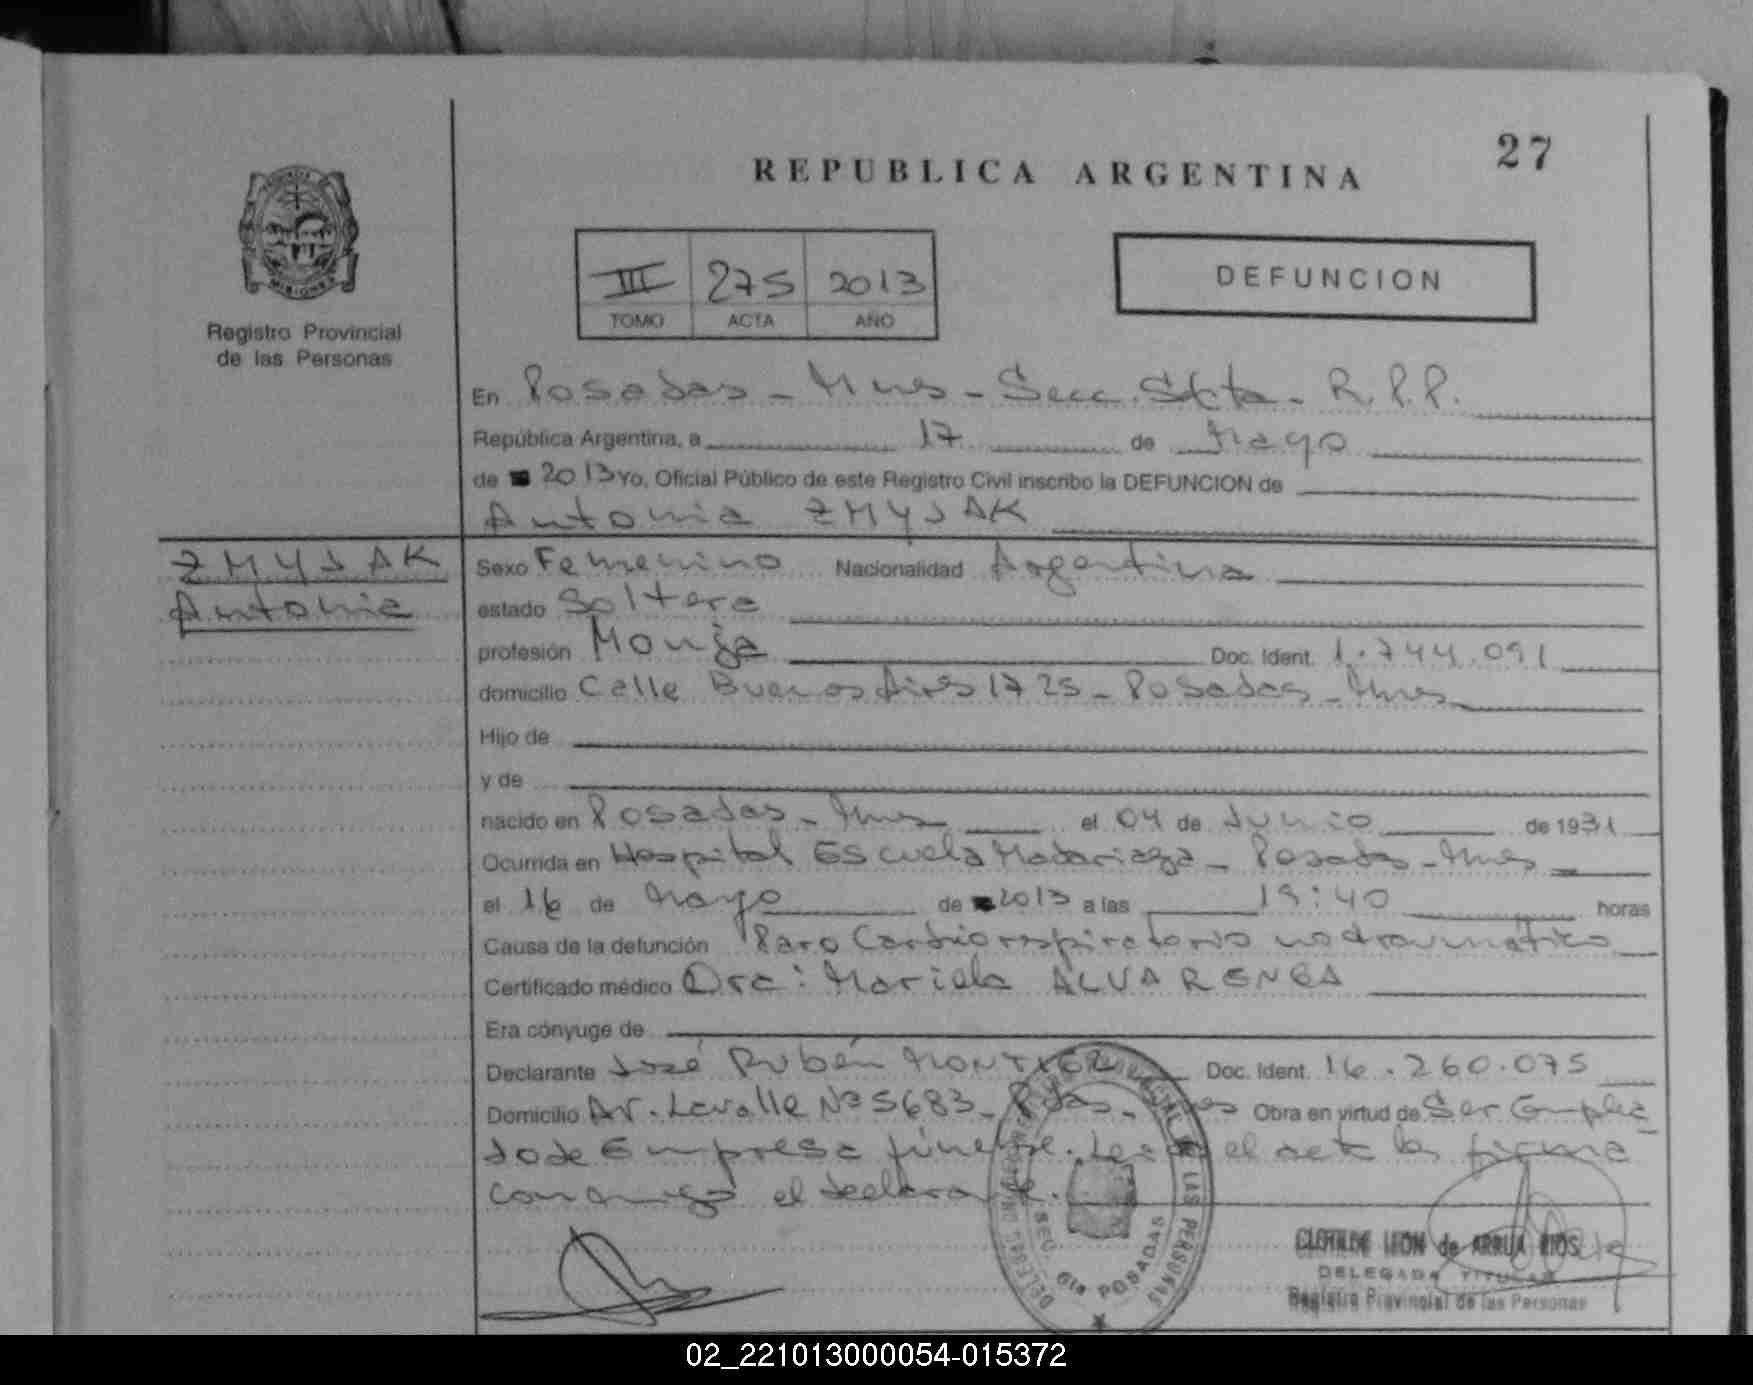 27
REPUBLICA ARGENTINA
III 275 2013
TOMO ACTA AÑO
DEFUNCION
MISIONES
Registro Provincial
de las Personas
En Posadas - Mnes - Secc. Sexta - R.P.P.
República Argentina, a 17 de Mayo
de 2013 Yo, Oficial Público de este Registro Civil inscribo la DEFUNCION de
Antonia ZMYJAK
ZMYJAK
Antonia
Sexo Femenino Nacionalidad Argentina
estado Soltera
profesión Monja Doc. Ident. 1.744.091
domicilio Calle Buenos Aires 1725 - Posadas - Mnes
Hijo de
y de
nacido en Posadas - Mnes el 04 de Junio de 1931
Ocurrida en Hospital Escuela Madariaga - Posadas - Mnes
el 16 de Mayo de 2013 a las 19:40 horas
Causa de la defunción Paro Cardiorespiratorio no traumático
Certificado médico Dra: Mariela ALVARENGA
Era cónyuge de
Declarante José Rubén MONTIEL Doc. Ident. 16.260.075
Domicilio Av. Lavalle Nº 5683 - Pdas - Mnes Obra en virtud de Ser Emplea
do de Empresa fúnebre. Leida el acta la firma
conmigo el declarante.
SEC. 6ta POSADAS
CLOTILDE LEON de ARRUA RIOS
DELEGADA TITULAR
Registro Provincial de las Personas
02_221013000054-015372